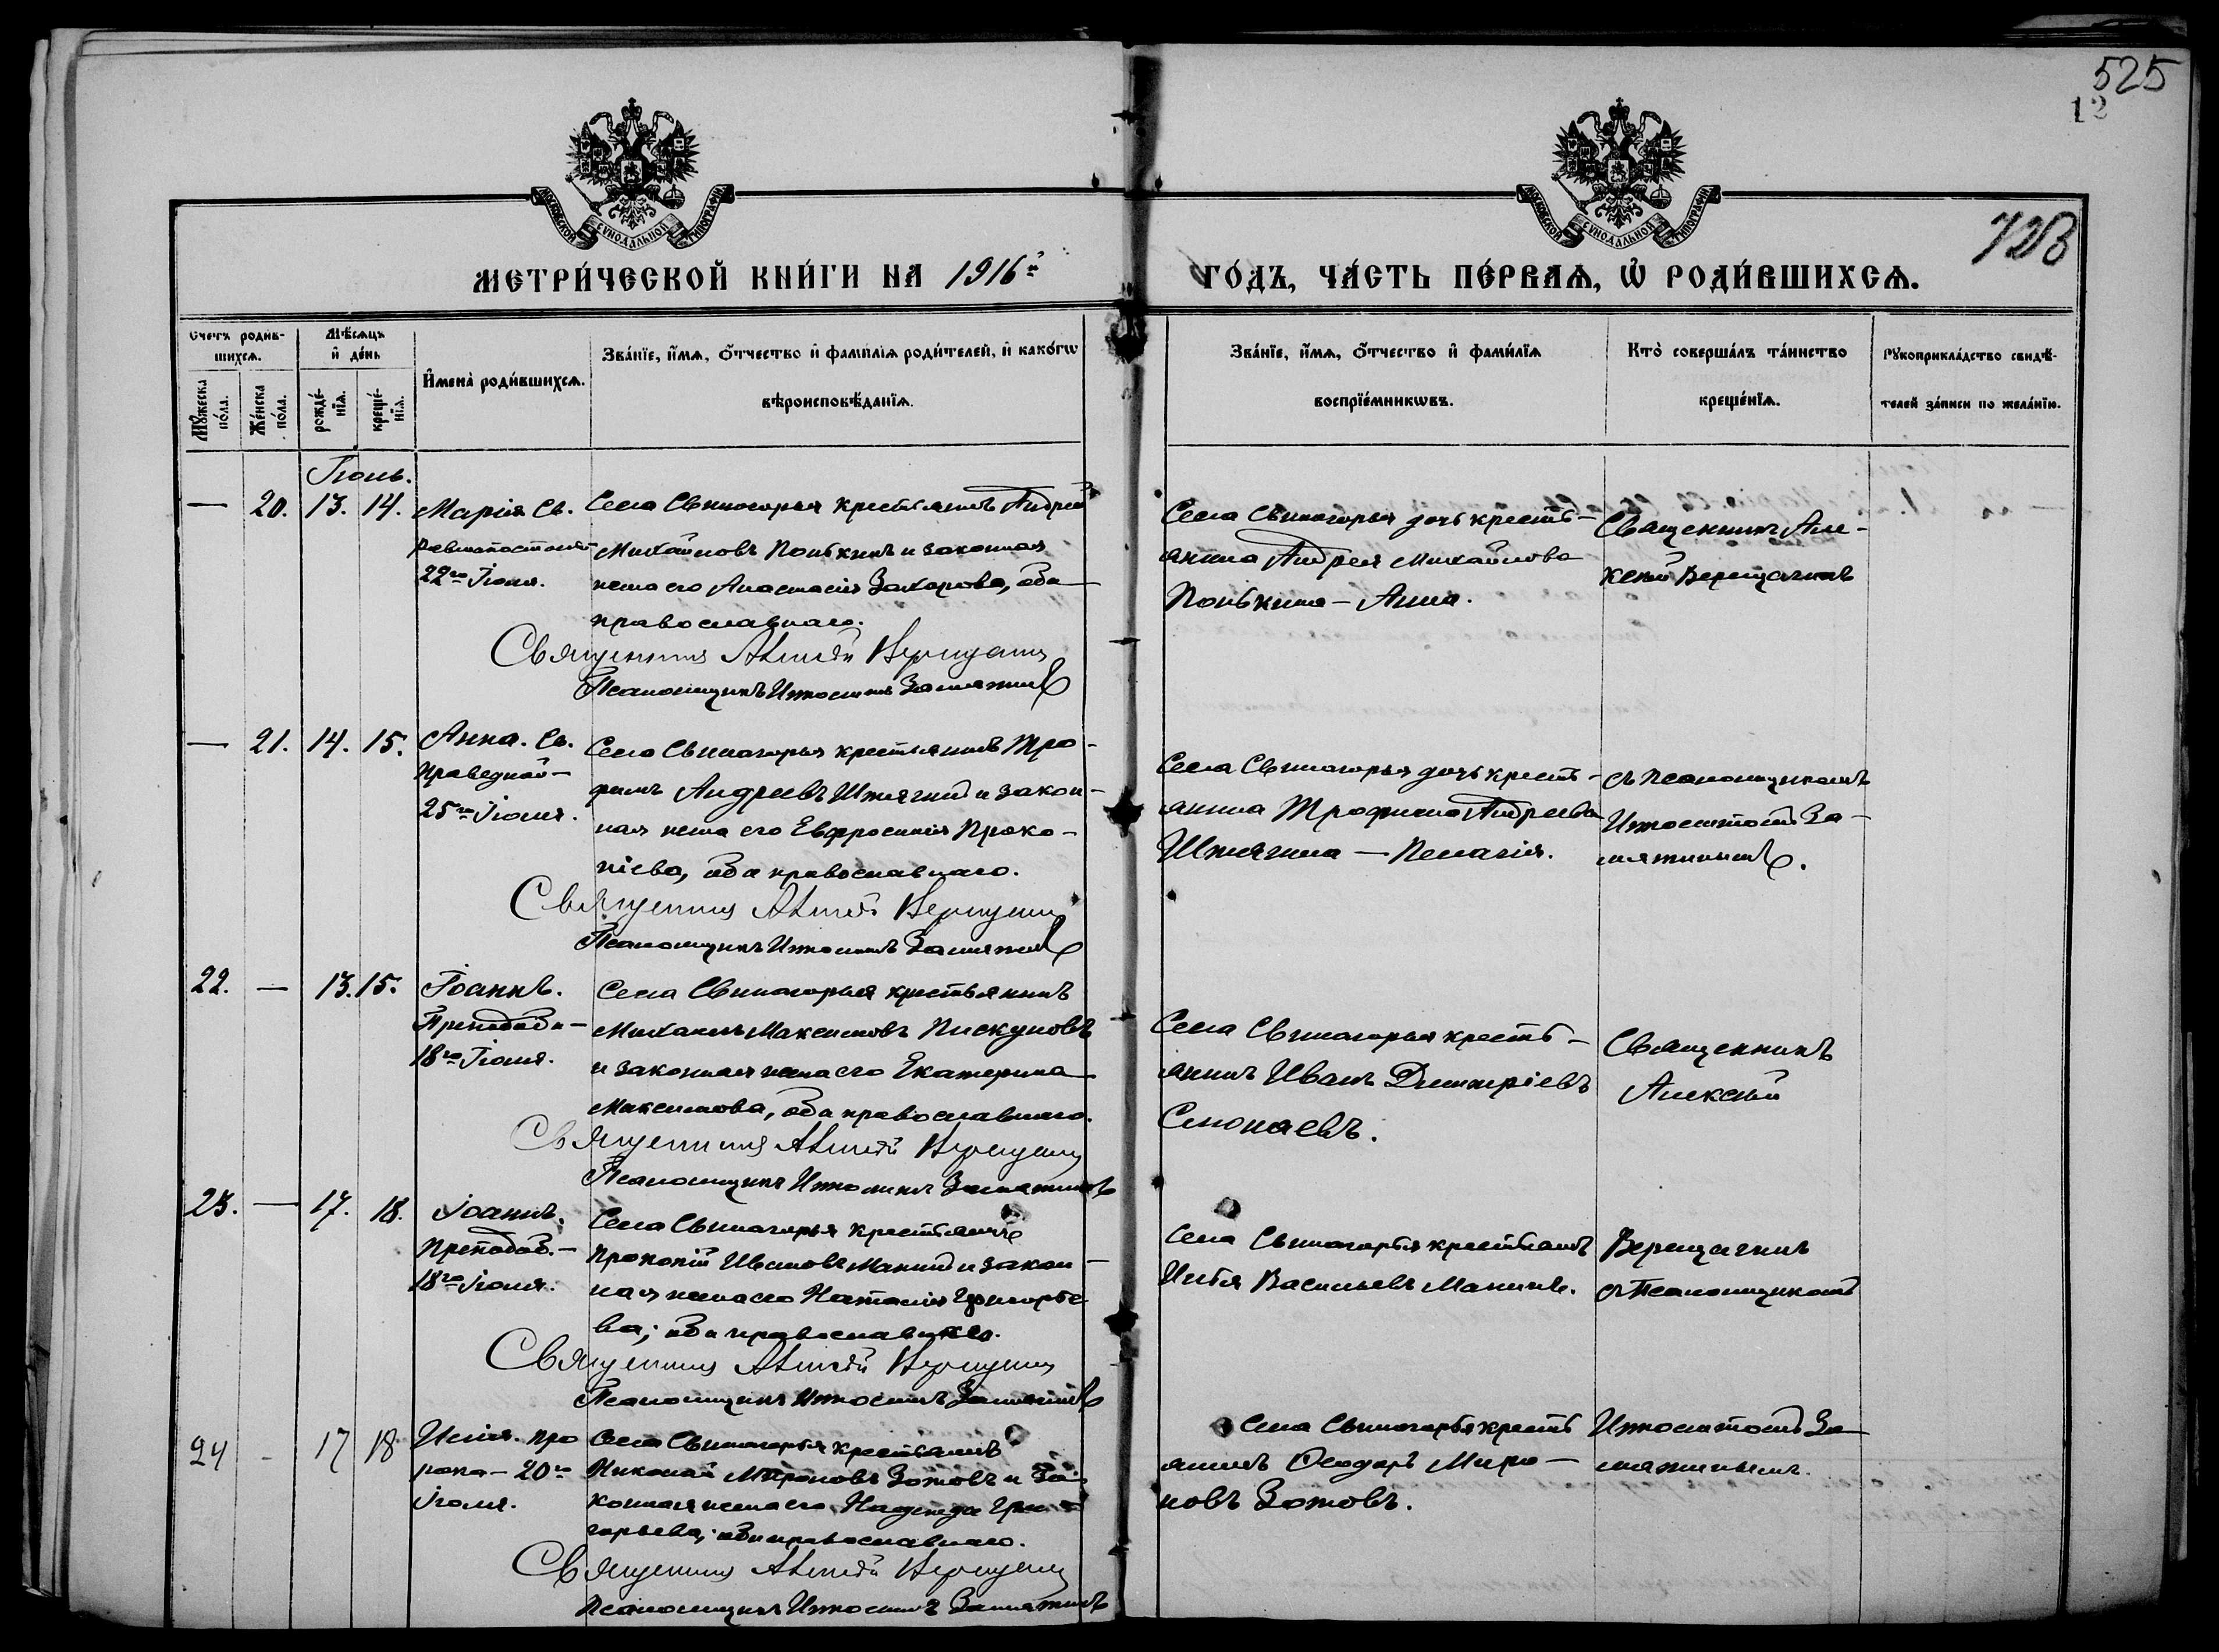 525
12
МОСКОВСКОЙ СѴНОДАЛЬНОЙ ТИПОГРАФІИ
МОСКОВСКОЙ СѴНОДАЛЬНОЙ ТИПОГРАФІИ
728
МЕТРИ́ЧЕСКОЙ КНИ́ГИ НА 1916й
ГО́ДЪ, ЧА́СТЬ ПЕ́РВАѦ, Ѡ҆ РОДИ́ВШИХСѦ.
Счетъ родив-
шихсѧ.
Мѣ́сѧцъ
и҆ де́нь
Мꙋ́жеска
по́ла.
Же́нска
по́ла.
рожде́-
нїѧ.
креще́-
нїѧ.
И҆мена̀ роди́вшихсѧ.
Зва́нїе, и҆́мѧ, ѻ҆́тчество и҆ фамилїѧ роди́телей, и҆ како́гѡ
вѣроисповѣ́данїѧ.
Зва́нїе, и҆́мѧ, ѻ҆́тчество и҆ фами́лїѧ
воспрїе́мникѡвъ.
Кто̀ соверша́лъ та́инство
креще́нїѧ.
Рꙋкоприкла́дство свидѣ́-
телей за́писи по жела́нїю.
Іюль.
— 20. 13. 14.
Марія Св.
равноапостольн
22го Іюля.
Села Свиногорья крестьянинъ Андрей
Михайловъ и законная
жена его Анастасія Захарова, оба
православнаго.
Священникъ Алексѣй Верещагинъ
Псаломщикъ Замятинъ
Села Свиногорья дочь кресть-
янина Андрея Михайлова
— Анна.
Священникъ Але-
ксѣй Верещагинъ
— 21. 14. 15.
Анна. Св.
праведной —
25го Іюля.
Села Свиногорья крестьянинъ Тро-
фимъ Андреевъ и закон-
ная жена его Евфросинія Проко-
піева, оба православнаго.
Священникъ Алексѣй Верещагинъ
Псаломщикъ Замятинъ
Села Свиногорья дочь кресть-
янина Трофима Андреева
— Пелагія.
съ псаломщикомъ
За-
мятинымъ.
22. — 13. 15.
Іоаннъ.
Преподоб —
18го Іюля.
Села Свиногорья крестьянинъ
Михаилъ Максимовъ Пискуновъ
и законная жена его Екатерина
Максимова, оба православнаго.
Священникъ Алексѣй Верещагинъ
Псаломщикъ Замятинъ
Села Свиногорья кресть-
янинъ Иванъ Димитріевъ
Священникъ
Алексѣй
23. — 17. 18.
Іоаннъ.
Преподоб. —
18го Іюля.
Села Свиногорья крестьянинъ
Прокопій Ивановъ Манинъ и закон-
ная жена его Наталія Григорье-
ва; оба православнаго.
Священникъ Алексѣй Верещагинъ
Псаломщикъ Замятинъ
Села Свиногорья крестьянинъ
Илья Васильевъ Манинъ.
Верещагинъ
съ Псаломщикомъ
24 - 17 18
Илія. про
рока — 20го
Іюля.
Села Свиногорья крестьянинъ
Николай Мироновъ Зотовъ и за-
конная жена его Надежда Гри-
горьева; оба православнаго.
Священникъ Алексѣй Верещагинъ
Псаломщикъ Замятинъ
Села Свиногорья кресть
янинъ Ѳеодоръ Миро-
новъ Зотовъ.
За-
мятинымъ.